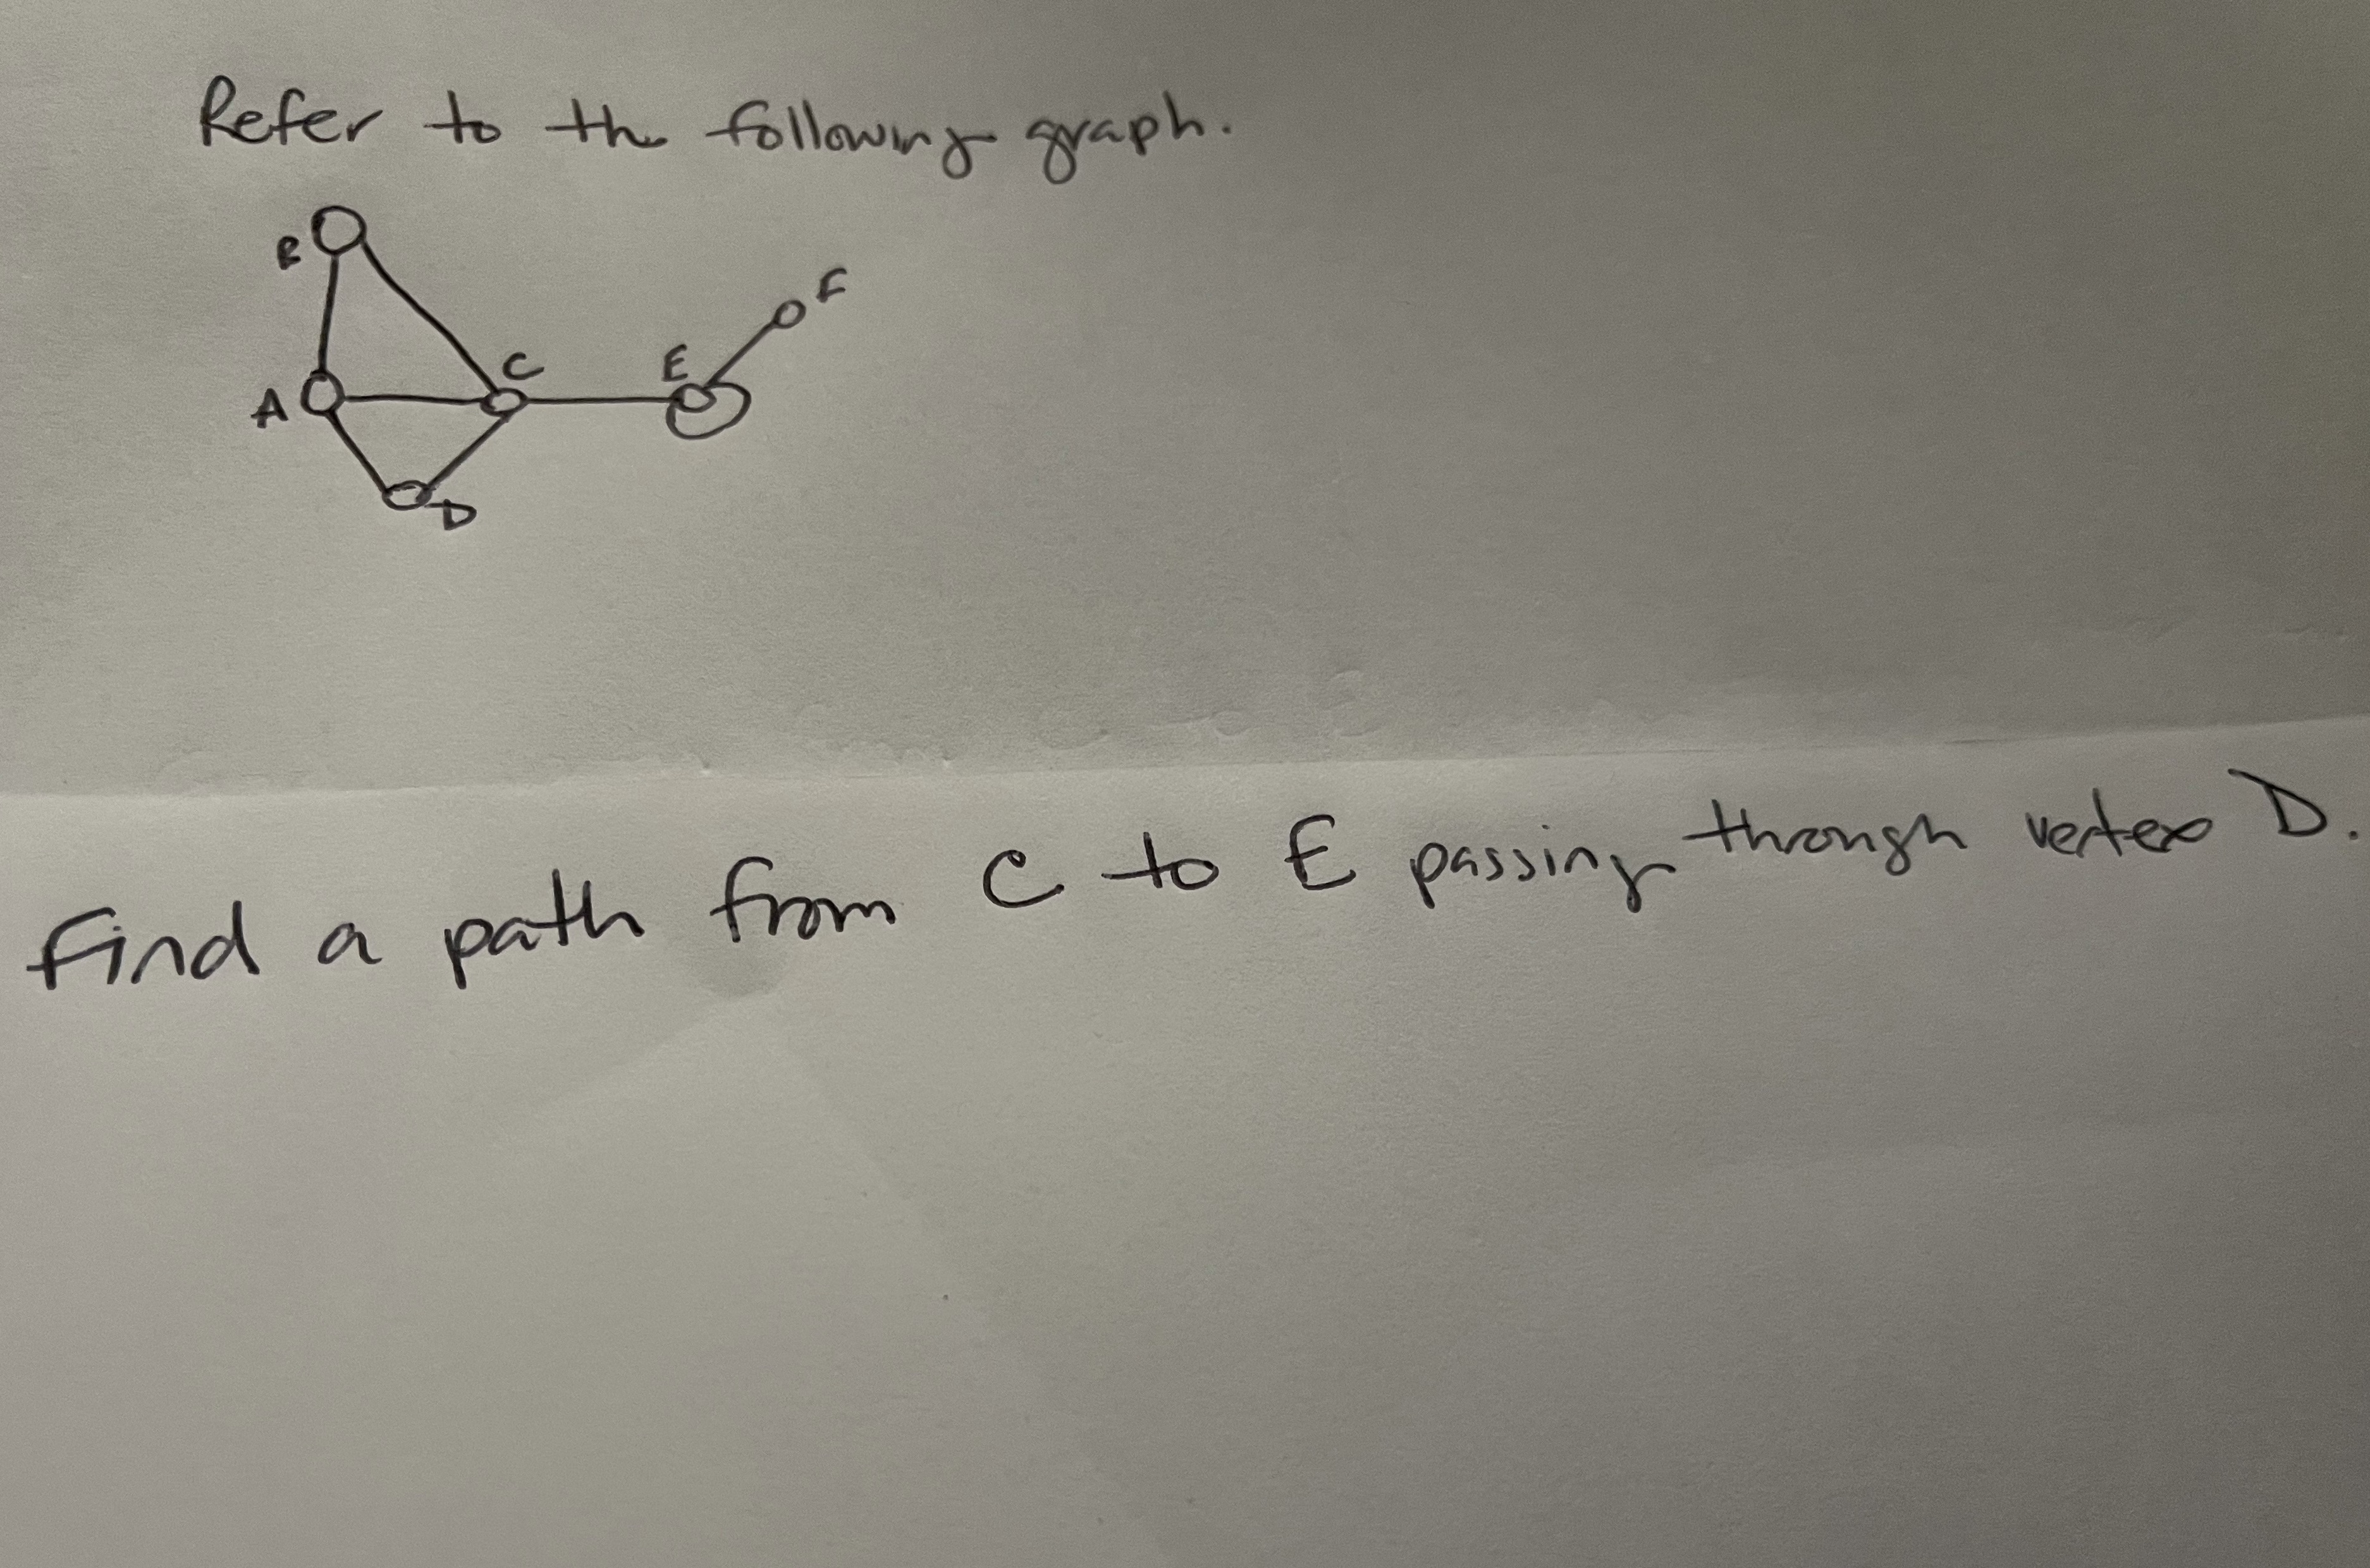 Refer to the following graph.
B
F
C
E
A
D
Find a path from C to E passing through vertex D.